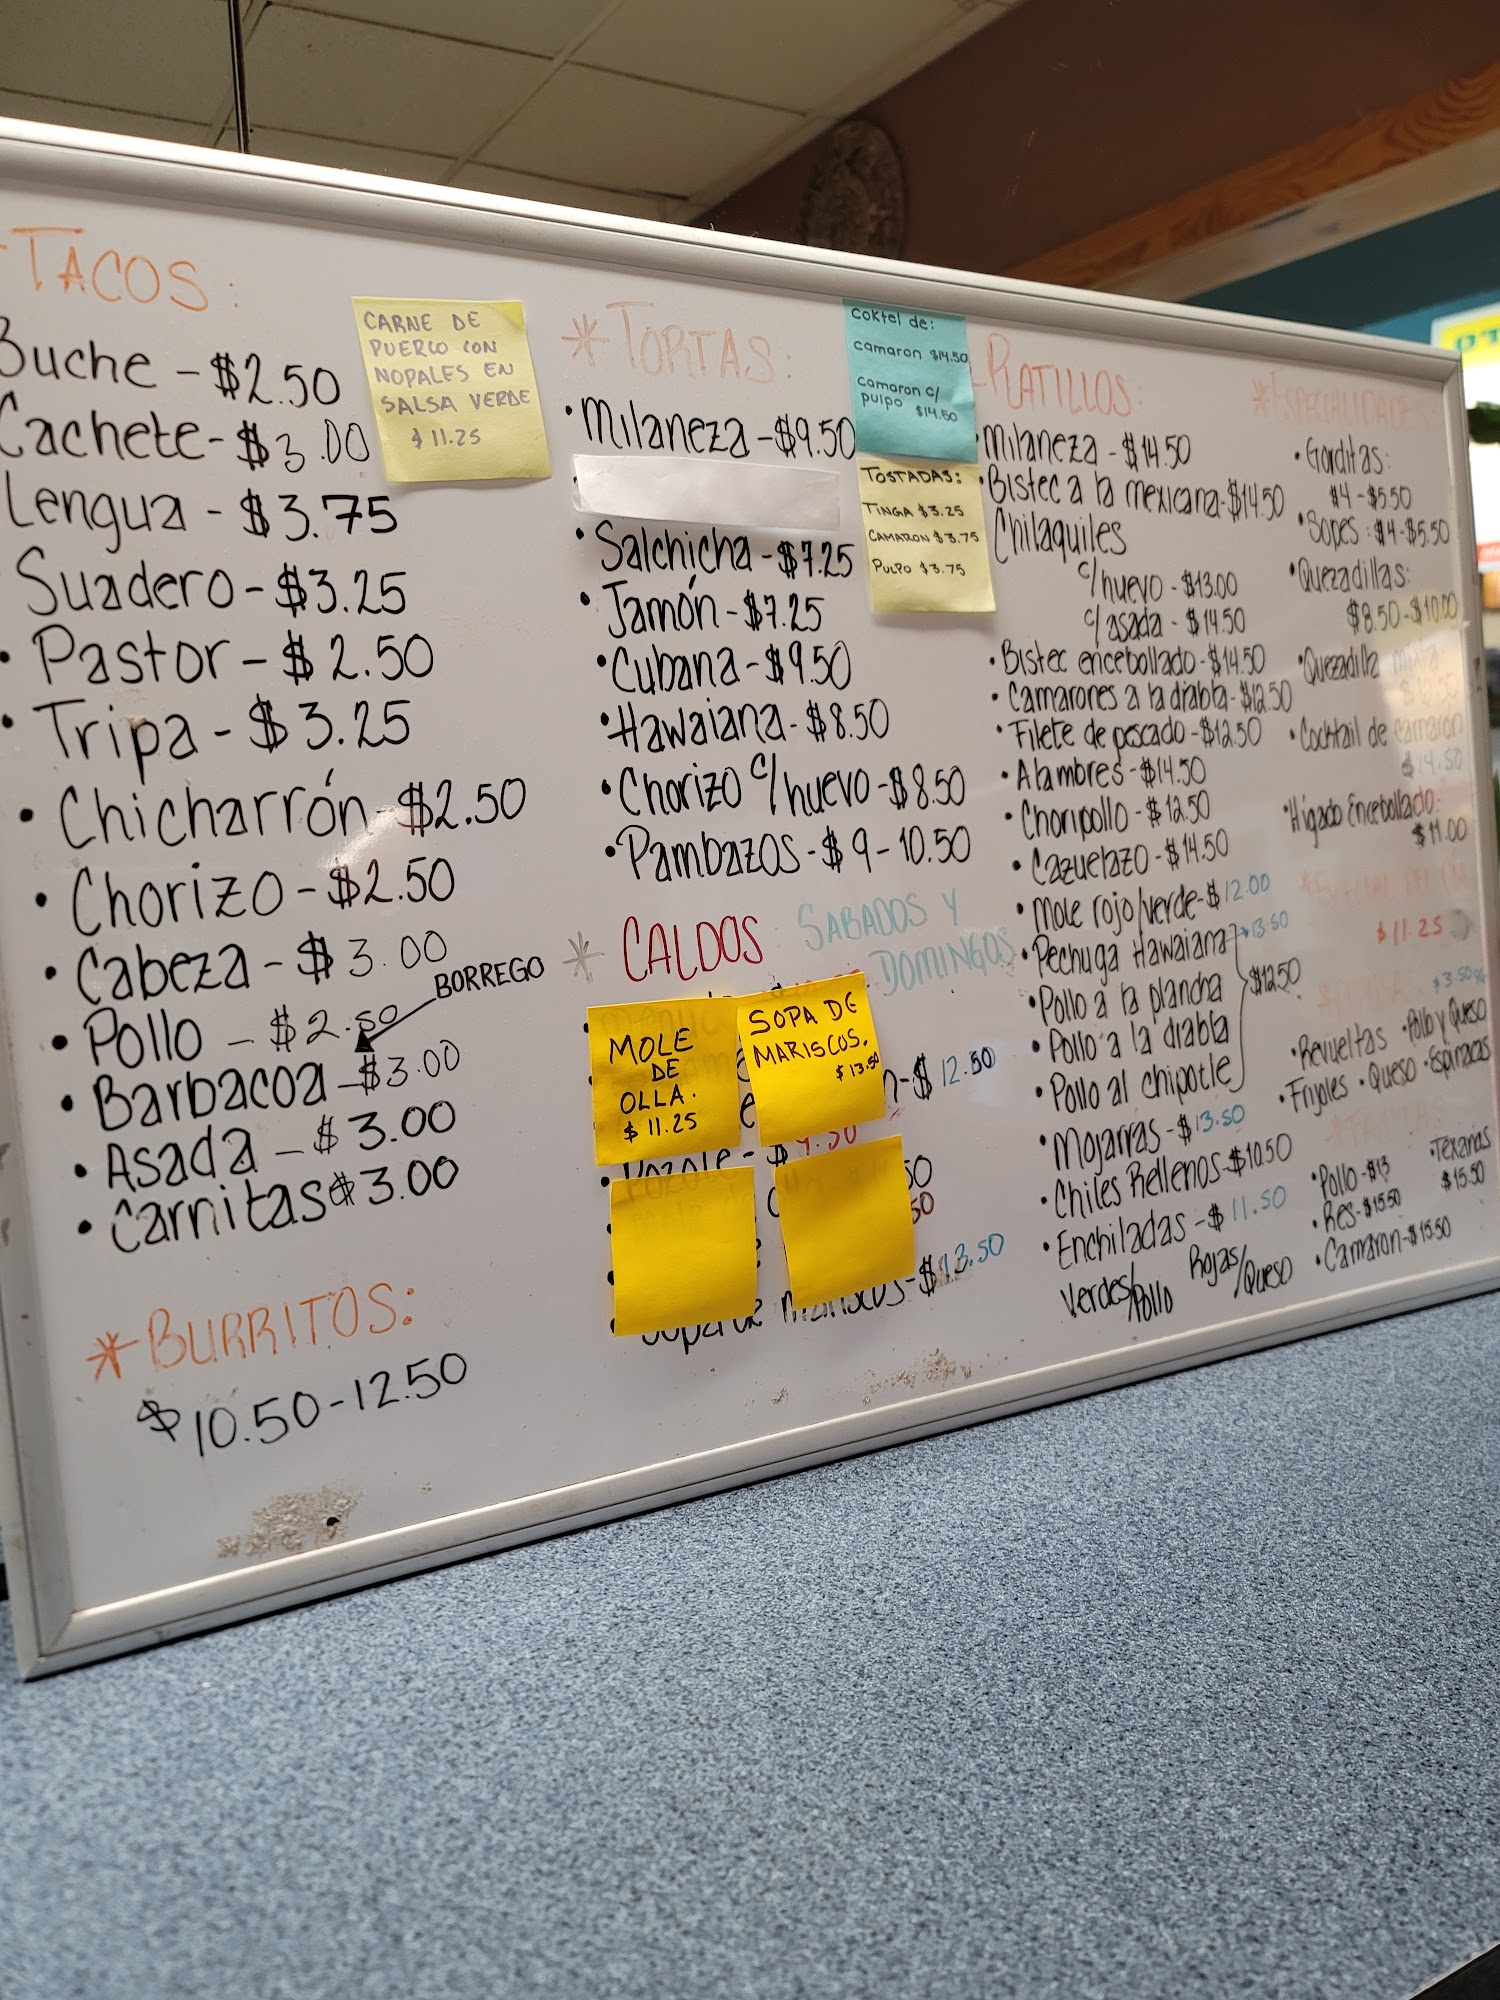 TACOS:
Buche - $2.50
Cachete - $3.00
Lengua - $3.75
Suadero - $3.25
• Pastor - $2.50
• Tripa - $3.25
• Chicharrón - $2.50
• Chorizo - $2.50
• Cabeza - $3.00
• Pollo - $2.50
BORREGO
• Barbacoa - $3.00
• Asada - $3.00
• Carnitas $3.00
* BURRITOS:
$10.50-12.50
CARNE DE
PUERCO CON
NOPALES EN
SALSA VERDE
$11.25
* TORTAS:
• Milaneza - $9.50
• Salchicha - $7.25
• Jamón - $7.25
• Cubana - $9.50
• Hawaiana - $8.50
• Chorizo c/huevo - $8.50
• Pambazos - $9-10.50
* CALDOS SABADOS Y
DOMINGOS
MOLE
DE
OLLA.
$11.25
SOPA DE
MARISCOS.
$13.50
$12.50
Pozole - $9.50
50
50
Sopa de Mariscos - $13.50
Coktel de:
camaron $14.50
camaron c/
pulpo $14.50
TOSTADAS:
TINGA $3.25
CAMARON $3.75
PULPO $3.75
PLATILLOS:
Milaneza - $14.50
• Bistec a la mexicana - $14.50
Chilaquiles
c/huevo - $13.00
c/asada - $14.50
• Bistec encebollado - $14.50
• Camarones a la diabla - $12.50
• Filete de pescado - $12.50
• Alambres - $14.50
• Choripollo - $12.50
• Cazuelazo - $14.50
• Mole rojo/verde - $12.00
• Pechuga Hawaiana $13.50
• Pollo a la plancha
$12.50
• Pollo a la diabla
• Pollo al chipotle
• Mojarras - $13.50
• Chiles Rellenos - $10.50
• Enchiladas - $11.50
Verdes/Pollo Rojas/Queso
* ESPECIALIDADES
• Gorditas:
$4 - $5.50
• Sopes: $4 - $5.50
• Quezadillas:
$8.50 - $10.00
• Quezadilla mixta
• Cocktail de camarón
$14.50
• Higado Encebollado:
$11.00
$11.25
$3.50
• Revueltas • Pollo y Queso
• Frijoles • Queso • Espinacas
• Pollo - $13
• Texanas
$15.50
• Res - $15.50
• Camaron - $15.50